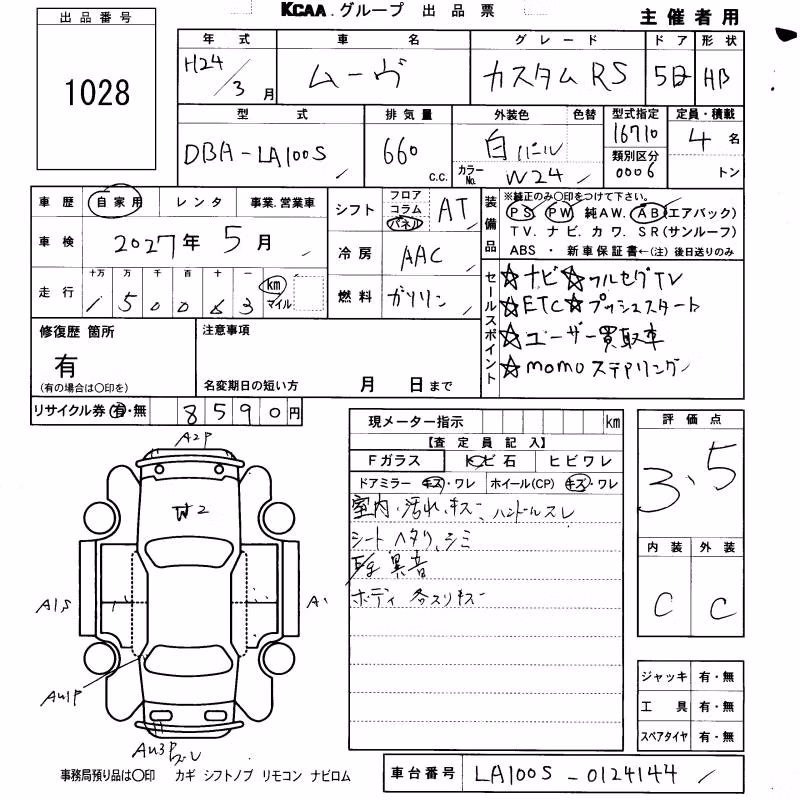 出品番号
KCAA.グループ 出品票
主催者用
1028
年式 車名 グレード ドア 形状
H24/3月 ムーヴ カスタムRS 5D HB
型式 排気量 外装色 色替 型式指定 定員・積載
DBA-LA100S 660 c.c. 白パール 16710 4名
カラーNo. W24 類別区分 0006 トン
車歴 自家用 レンタ 事業.営業車
シフト フロア コラム パネル AT
装備品 ※純正のみ〇印をつけて下さい。
PS PW 純AW. AB(エアバック)
TV. ナビ. カワ. SR(サンルーフ)
ABS ・ 新車保証書←(注) 後日送りのみ
車検 2027年 5月
冷房 AAC
走行 十万 万 千 百 十 一 km マイル
150063
燃料 ガソリン
セールスポイント
☆ナビ☆フルセグTV
☆ETC☆プッシュスタート
☆ユーザー買取車
☆momoステアリング
修復歴 箇所
有
(有の場合は〇印を)
注意事項
名変期日の短い方 月 日まで
リサイクル券 有・無 8590円
現メーター指示 km
【査定員記入】
Fガラス トビ石 ヒビワレ
ドアミラー キズ・ワレ ホイール(CP) キズ・ワレ
室内.汚れ.キズ、ハンドルスレ
シートヘタリ、シミ
異音
ボディ各スリキズ
評価点
3.5
内装 外装
C C
A2P
W2
A1S
A1
AU1P
AU3P
ズレ
ジャッキ 有・無
工具 有・無
スペアタイヤ 有・無
事務局預り品は〇印 カギ シフトノブ リモコン ナビロム
車台番号 LA100S-0124144